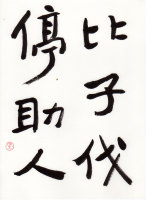 比子伐
停助人